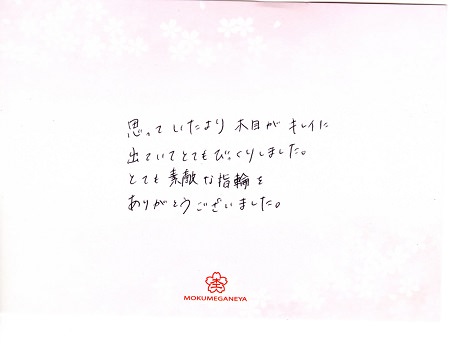 思っていたより木目がキレイに
出ていてとてもびっくりしました。
とても素敵な指輪を
ありがとうございました。
MOKUMEGANEYA